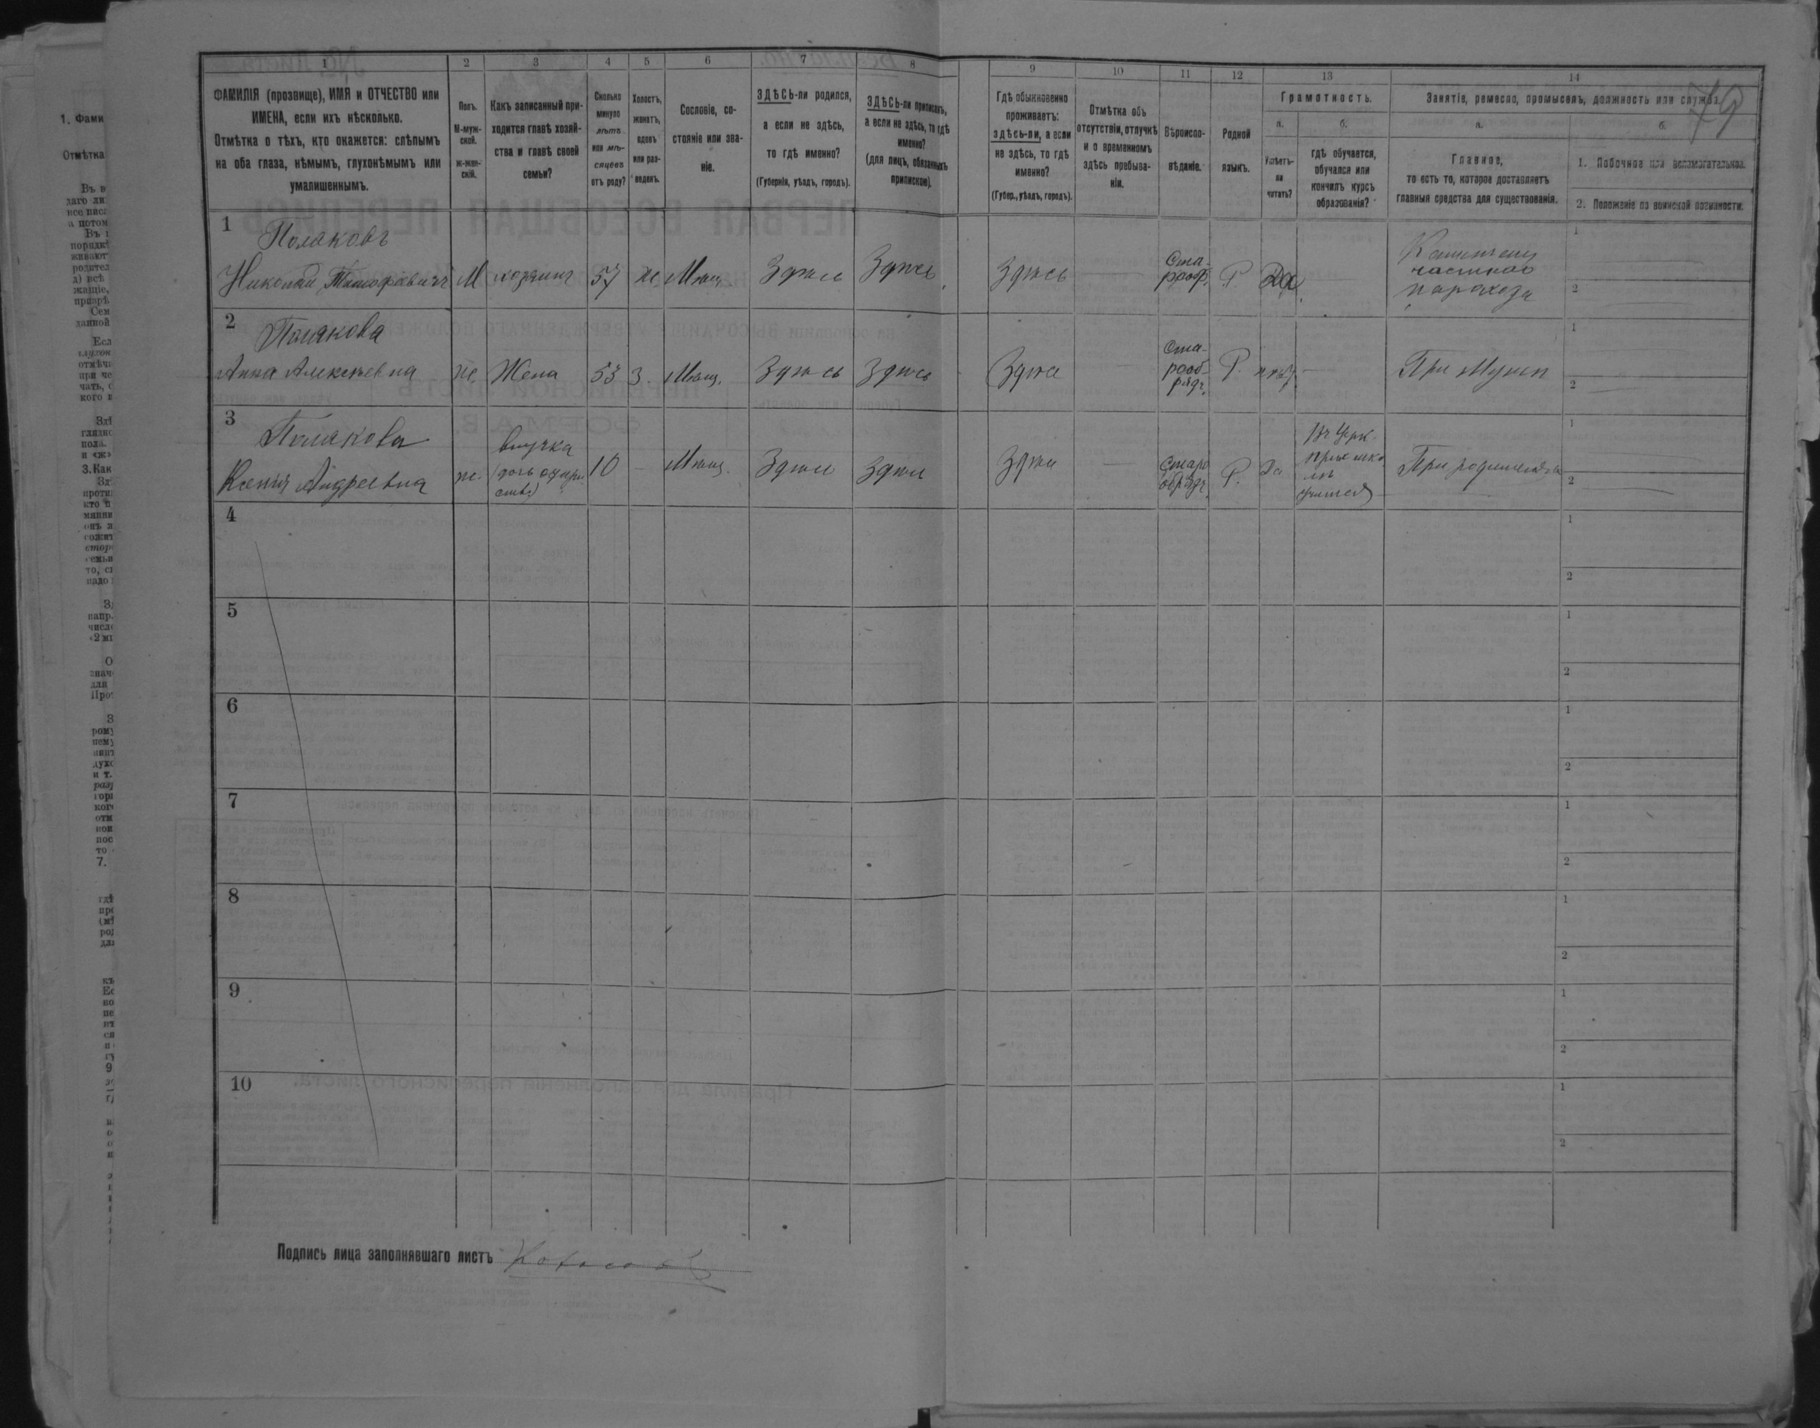 79
1 2 3 4 5 6 7 8 9 10 11 12 13 14
ФАМИЛІЯ (прозвище), ИМЯ и ОТЧЕСТВО или
ИМЕНА, если ихъ нѣсколько.
Отмѣтка о тѣхъ, кто окажется: слѣпымъ
на оба глаза, нѣмымъ, глухонѣмымъ или
умалишеннымъ.
Полъ.
М-муж-
ской.
ж-жен-
скій.
Какъ записанный при-
ходится главѣ хозяй-
ства и главѣ своей
семьи?
Сколько
минуло
лѣтъ
или мѣ-
сяцевъ
отъ роду?
Холостъ,
женатъ,
вдовъ
или раз-
веденъ.
Сословіе, со-
стояніе или зва-
ніе.
ЗДѢСЬ-ли родился,
а если не здѣсь,
то гдѣ именно?
(Губернія, уѣздъ, городъ).
ЗДѢСЬ-ли приписанъ,
а если не здѣсь, то гдѣ
именно?
(для лицъ, обязанныхъ
припиской).
Гдѣ обыкновенно
проживаетъ:
здѣсь-ли, а если
не здѣсь, то гдѣ
именно?
(Губер., уѣздъ, городъ).
Отмѣтка объ
отсутствіи, отлучкѣ
и о временномъ
здѣсь пребыва-
ніи.
Вѣроиспо-
вѣданіе.
Родной
языкъ.
Грамотность.
а.
Умѣетъ-
ли
читать?
б.
гдѣ обучается,
обучался или
кончилъ курсъ
образованія?
Занятіе, ремесло, промыселъ, должность или служба.
а.
Главное,
то есть то, которое доставляетъ
главныя средства для существованія.
б.
1. Побочное или вспомогательное.
2. Положеніе по воинской повинности.
1
Поляковъ
Николай Тимофѣевичъ М хозяинъ 57 ж Мѣщ. Здѣсь Здѣсь Здѣсь
Ста-
рооб. Р Да
частнаго
парохода
1
2
2
Полякова
Анна Алексѣевна ж Жена 53 З. Мѣщ. Здѣсь Здѣсь Здѣсь
Ста-
рооб-
рядч. Р. нѣтъ При мужѣ
1
2
3
Полякова
Ксенія Андреевна ж. внучка
10 Мѣщ. Здѣсь Здѣсь Здѣсь
Старо
обрядч. Р. Да
учится
При родителяхъ
1
2
4
1
2
5
1
2
6
1
2
7
1
2
8
1
2
9
1
2
10
1
2
Подпись лица заполнявшаго листъ